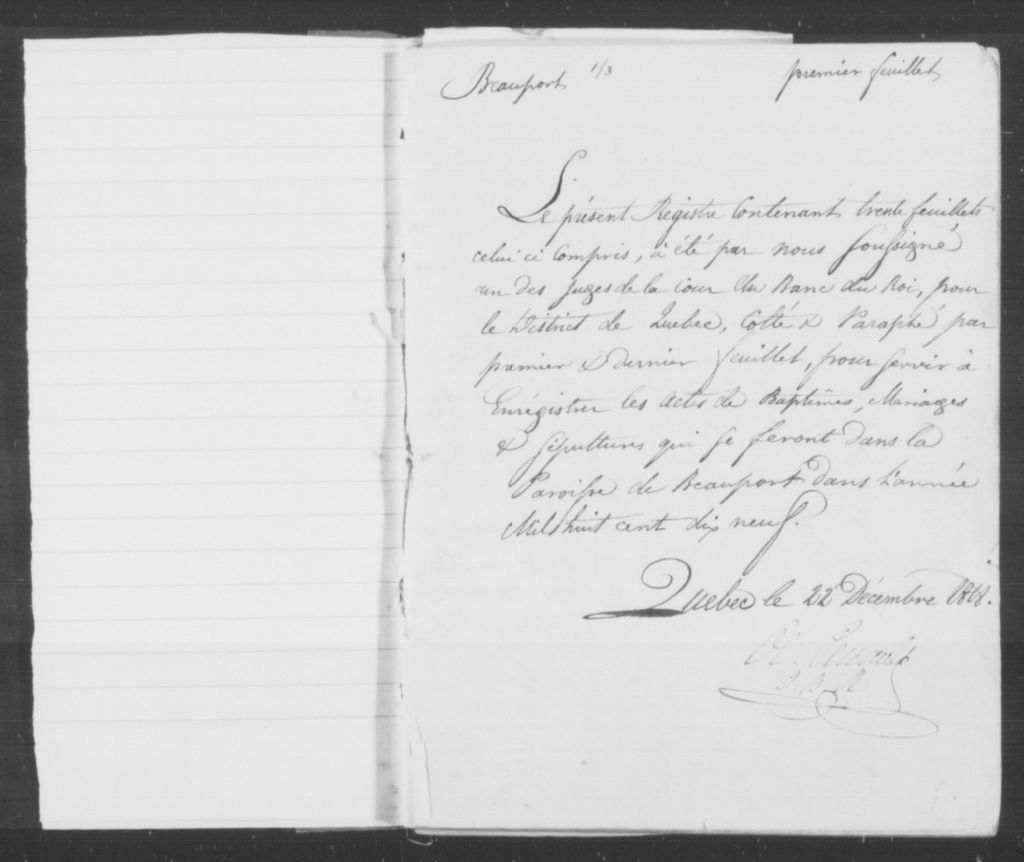 Beauport 1/3 premier feuillet
Le présent Registre Contenant trente feuillets
celui ci Compris, a été par nous Soussigné
un des Juges de la Cour du Banc du Roi, pour
le District de Quebec, Cotté & Paraphé par
premier & dernier feuillet, pour Servir à
Enrégistrer les Actes de Baptêmes, Mariages
& Sépultures qui Se feront dans la
Paroisse de Beauport dans l'année
Mil huit cent dix neuf.
Quebec le 22 Décembre 1818.